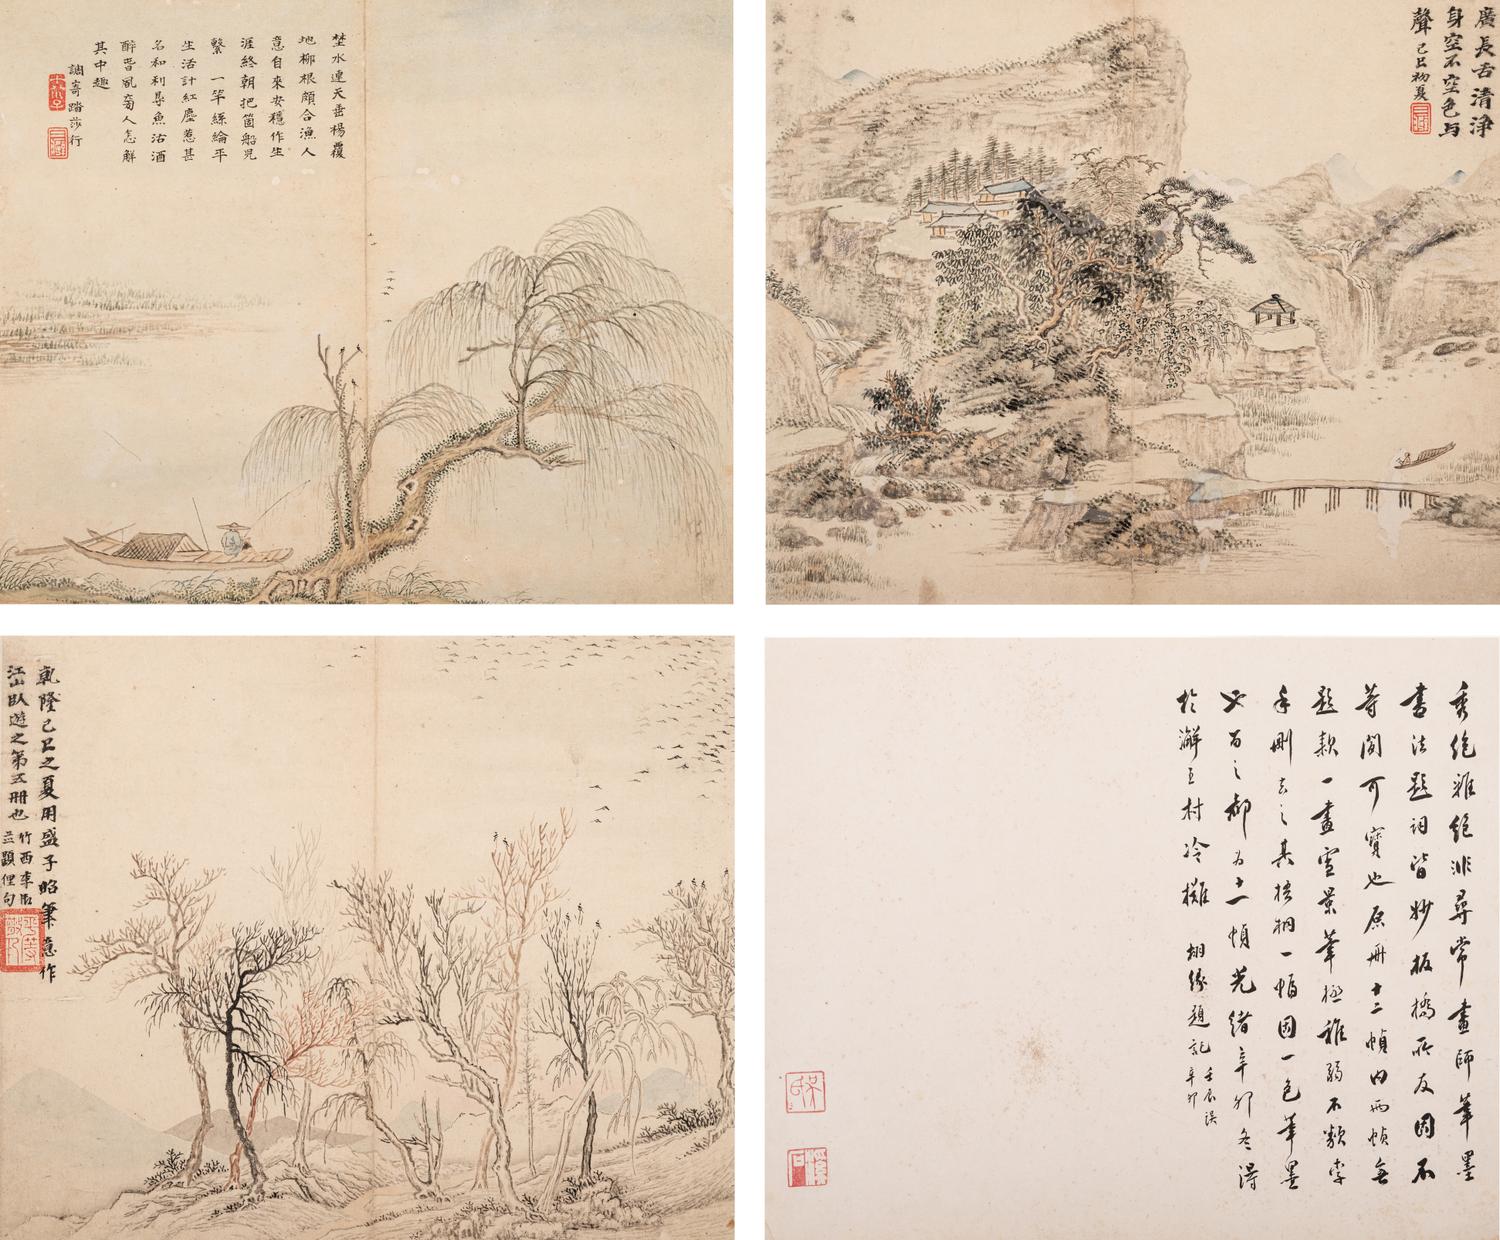 埜水連天垂楊覆
地柳根頗合漁人
意自來安穩作生
涯終朝把箇船兒
繫 一竿絲綸平
生活計紅塵惹甚
名和利得魚沽酒
醉普風商人怎解
其中趣
調寄踏莎行
廣長舌清淨
身空不空色与
聲 己巳初夏
乾隆己巳之夏用盛子昭筆意作
江山臥遊之第五冊也 竹西李
並題俚句
秀絕雅絕非尋常畫師筆墨
書法題詞皆妙板橋所友固不
等閒可寶也原冊十二幀內兩幀無
題款一畫雪景筆極稚弱不類李
手刪去之其梧桐一幅固一色筆墨
必留之都為十一幀光緒辛卯冬得
於海王村冷攤 題記 壬辰誤
辛卯